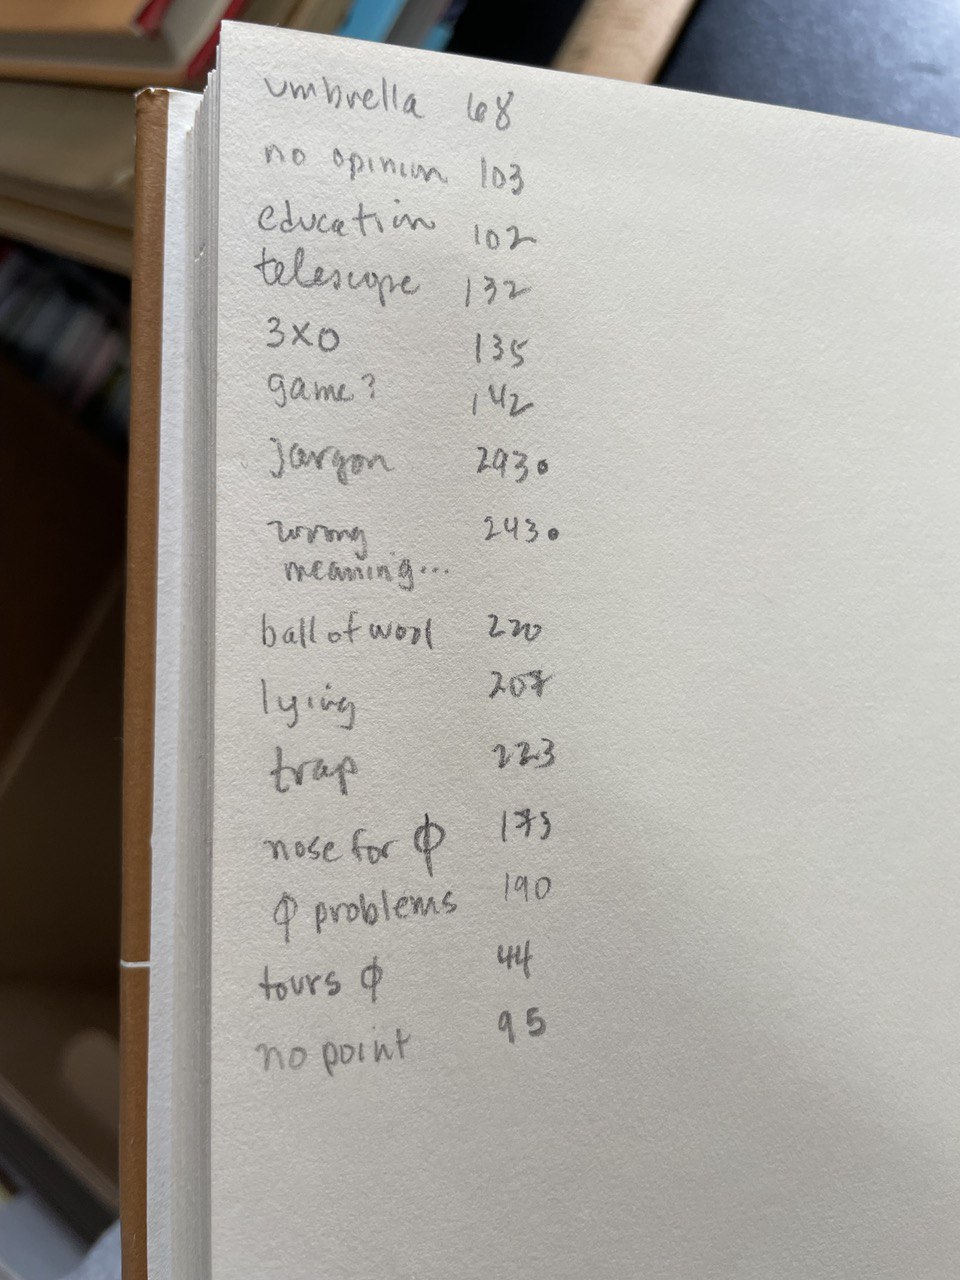 umbrella 68
no opinion 103
education 102
telescope 132
3x0 135
game? 142
jargon 293.
wrong 243.
meaning...
ball of wool 220
lying 207
trap 223
nose for φ 175
φ problems 190
tours φ 44
no point 95